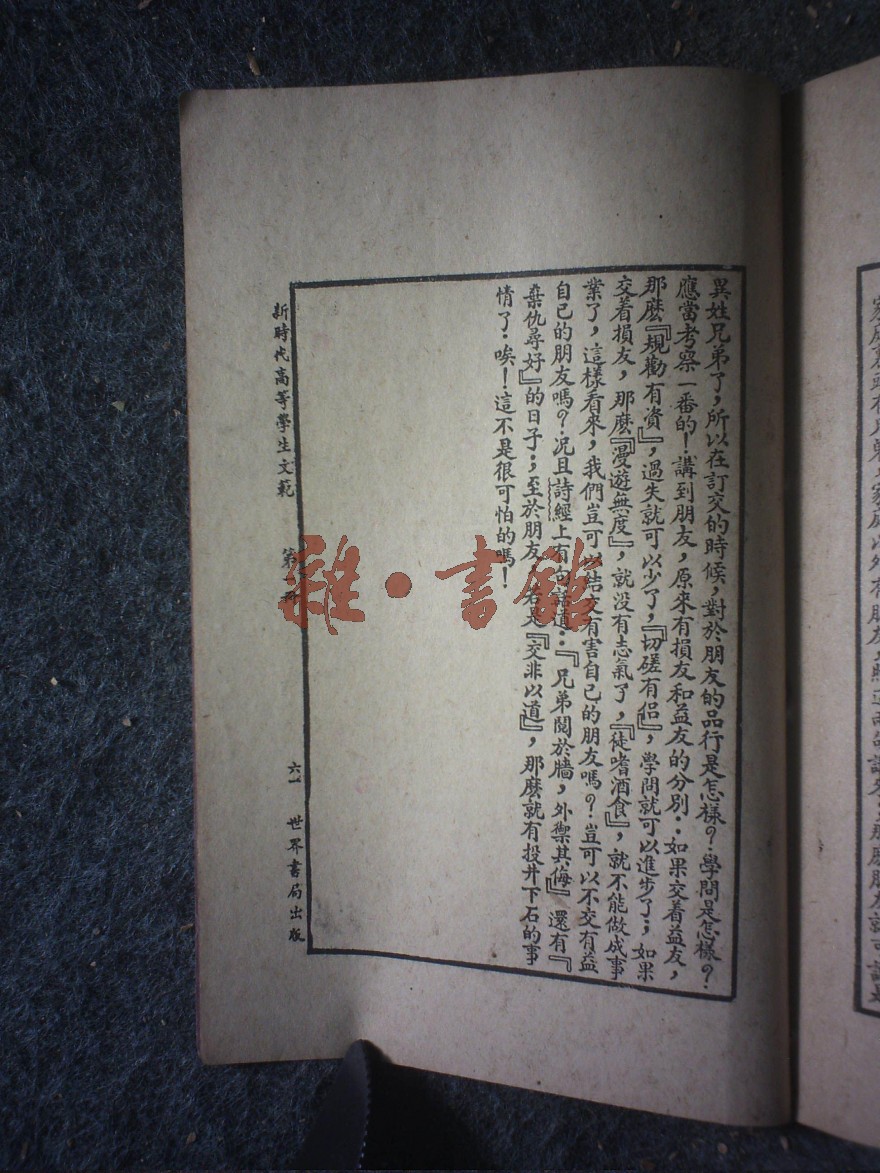 異姓兄弟了，所以在訂交的時候，對於朋友的品行是怎樣？學問是怎樣？
應當考察一番的！講到朋友，原來有損友和益友的分別：如果交着益友，
那麽『規勸有資』，過失就可以少了，『切磋有侶』，學問就可以進步了；如果
交着損友，那麽『漫遊無度』，就沒有志氣了，『徒嗜酒食』，就不能做成事
業了，這樣看來，我們豈可以結交有害自己的朋友嗎？豈可以不交有益
自己的朋友嗎？況且詩經上有句話道：『兄弟鬩於牆，外禦其侮』還有『
棄仇尋好』的日子；至於朋友，若是『交非以道』，那麽就有投井下石的事
情了．唉！這不是很可怕的嗎！
新時代高等學生文範　第　冊　六一　世界書局出版
雜·書館